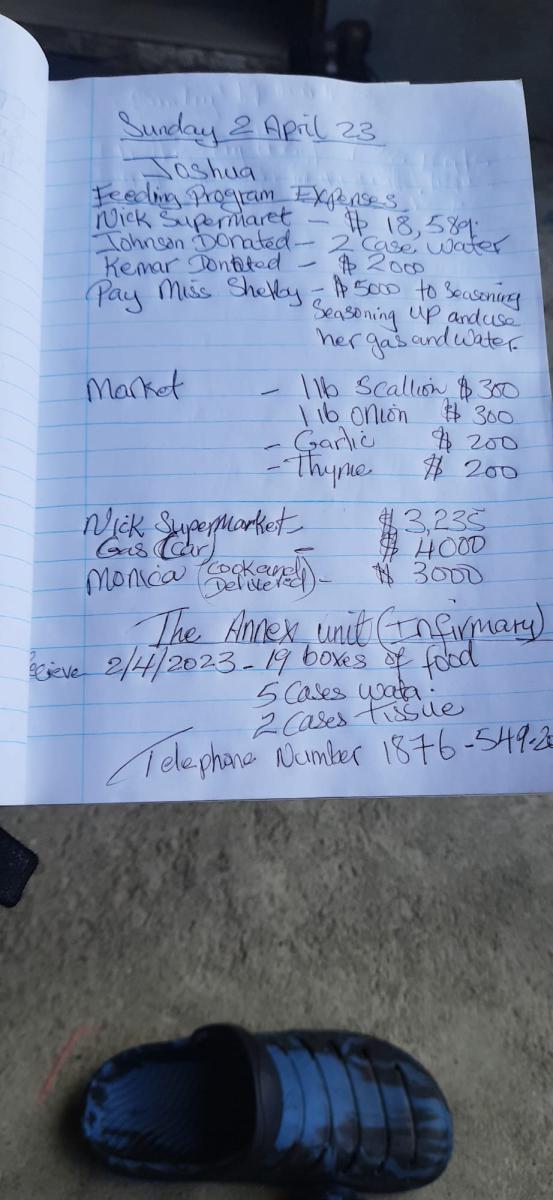 Sunday 2 April 23
Joshua
Feeding Program Expenses
Nick Supermaret - $ 18,589.
Johnson Donated - 2 case water
Kemar Dontated - $ 2000
Pay Miss Shelly - $5000 to Seasoning
Seasoning up and use
her gas and water.
Market - 1 lb Scallion $ 300
1 lb onion $ 300
- Garlic $ 200
- Thyme $ 200
Nick Supermarket $ 3,235
Gas (car) - $ 4000
Monica (Cook and Delivered) - $ 3000
The Annex unit (Infirmary)
Recieve 2/4/2023 - 19 boxes of food
5 Cases wata.
2 Cases tissue
Telephone Number 1876-549-